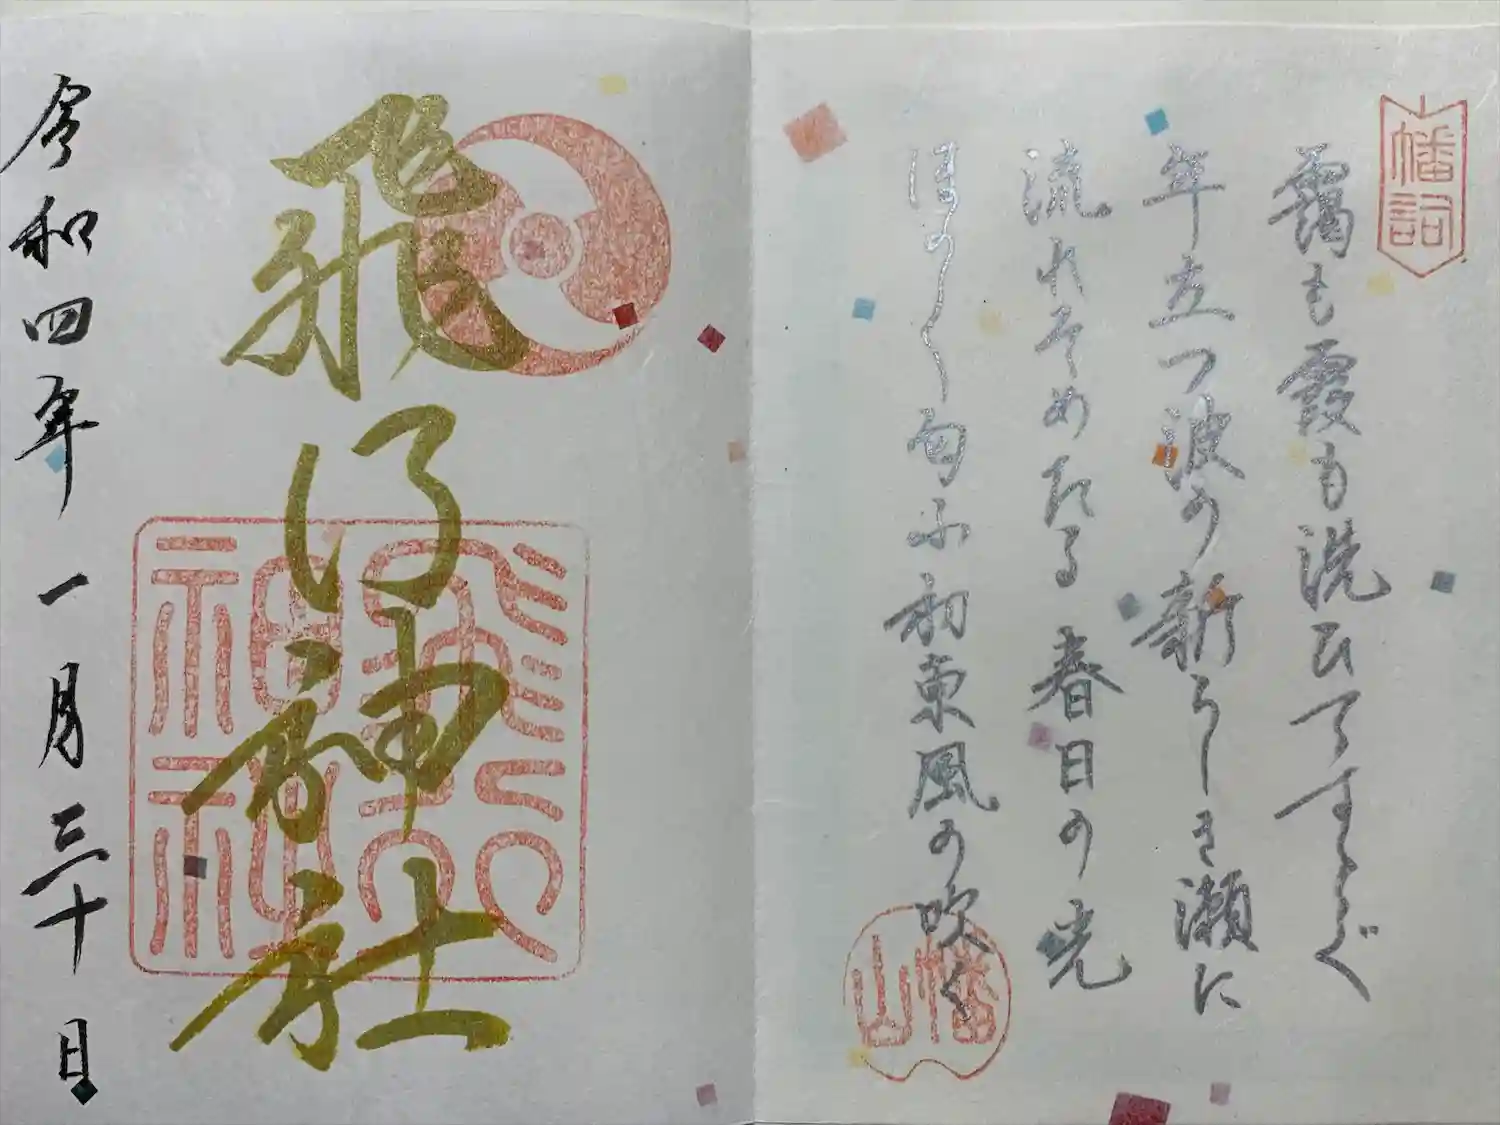 幡詞
靄も霞も洗ひてすゝぐ
年立つ波の新らしき瀬に
流れそめたる春日の光
ほの〱匂ふ初東風の吹く
幡山
飛行神社
飛行神社
令和四年一月三十日